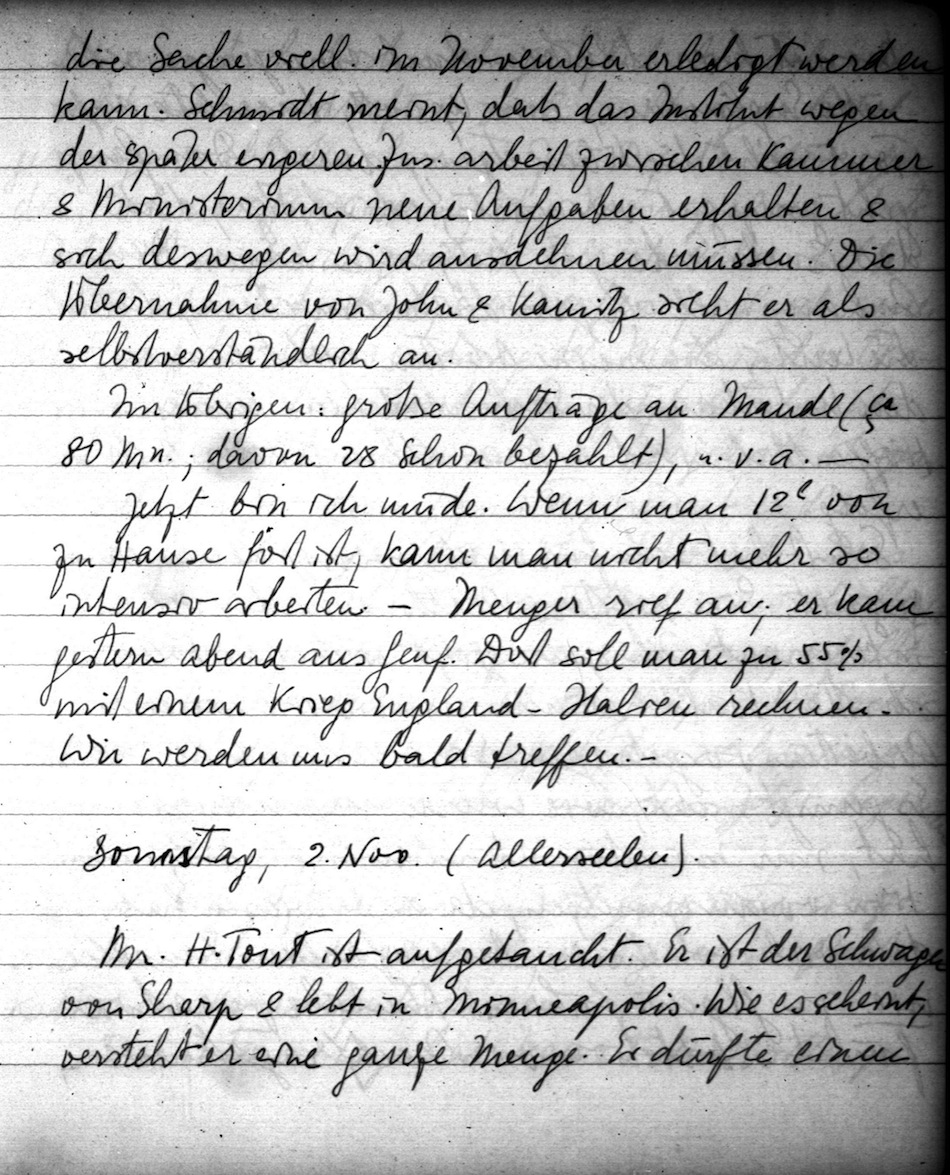 die Sache viell. im November erledigt werden
kann. Schmidt meint, daß das Institut wegen
der später engeren Zus. arbeit zwischen Kammer
& Ministerium neue Aufgaben erhalten &
sich deswegen wird ausdehnen müssen. Die
Übernahme von John & Kamitz sieht er als
selbstverständlich an.
Im Übrigen: große Aufträge an Mandl (ca
80 Mn.; davon 28 schon bezahlt), u. v. a. —
Jetzt bin ich müde. Wenn man 12ʰ von
zu Hause fort ist, kann man nicht mehr so
intensiv arbeiten. — Menger rief an; er kam
gestern abend aus Genf. Dort soll man zu 55%
mit einem Krieg England - Italien rechnen. -
Wir werden uns bald treffen. -
2. Nov. (Allerseelen).
Mr. H. Tout ist aufgetaucht. Er ist der Schwager
von Sharp & lebt in Minneapolis. Wie es scheint,
versteht er eine ganze Menge. Er dürfte einen